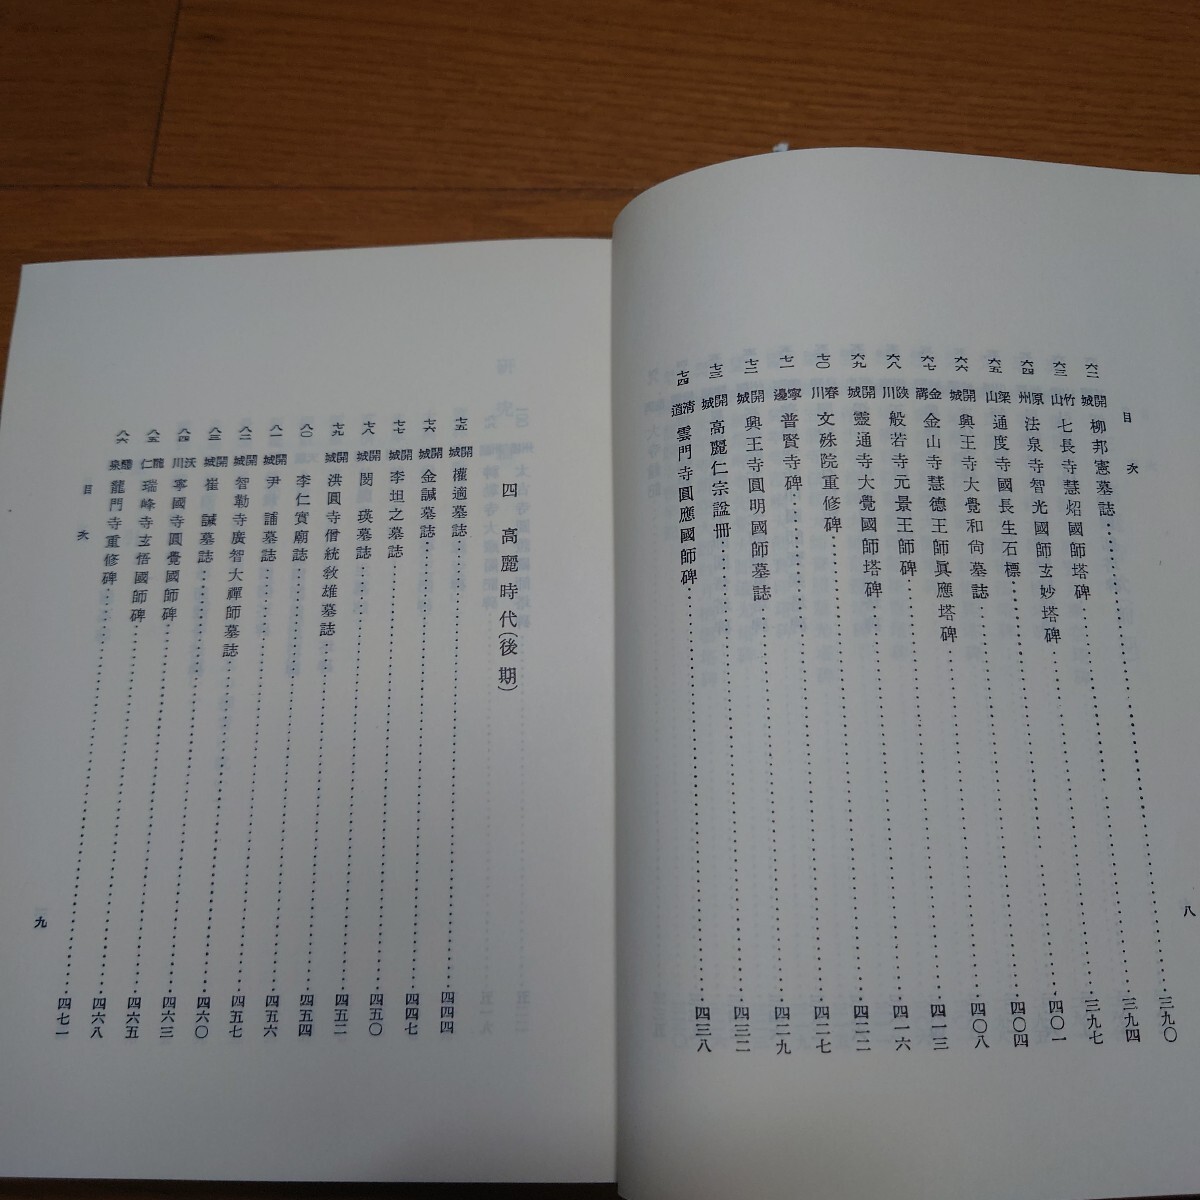 目次
六二 開城 柳邦憲墓誌……三九〇
六三 竹山 七長寺慧炤國師塔碑……三九四
六四 原州 法泉寺智光國師玄妙塔碑……三九七
六五 梁山 通度寺國長生石標……四〇一
六六 開城 興王寺大覺和尙墓誌……四〇四
六七 金溝 金山寺慧德王師眞應塔碑……四〇八
六八 陜川 般若寺元景王師碑……四一三
六九 開城 靈通寺大覺國師塔碑……四一六
七〇 春川 文殊院重修碑……四二二
七一 寧邊 普賢寺碑……四二七
七二 開城 興王寺圓明國師墓誌……四二九
七三 開城 高麗仁宗諡冊……四三二
七四 淸道 雲門寺圓應國師碑……四三八
八
四 高麗時代(後期)
七五 開城 權適墓誌……四四四
七六 開城 金諴墓誌……四四七
七七 開城 李坦之墓誌……四五〇
七八 開城 閔瑛墓誌……四五二
七九 開城 洪圓寺僧統敎雄墓誌……四五四
八〇 李仁實廟誌……四五六
八一 開城 尹誧墓誌……四五七
八二 開城 智勒寺廣智大禪師墓誌……四六〇
八三 開城 崔誠墓誌……四六三
八四 沃川 寧國寺圓覺國師碑……四六五
八五 龍仁 瑞峰寺玄悟國師碑……四六八
八六 醴泉 龍門寺重修碑……四七一
目次
九